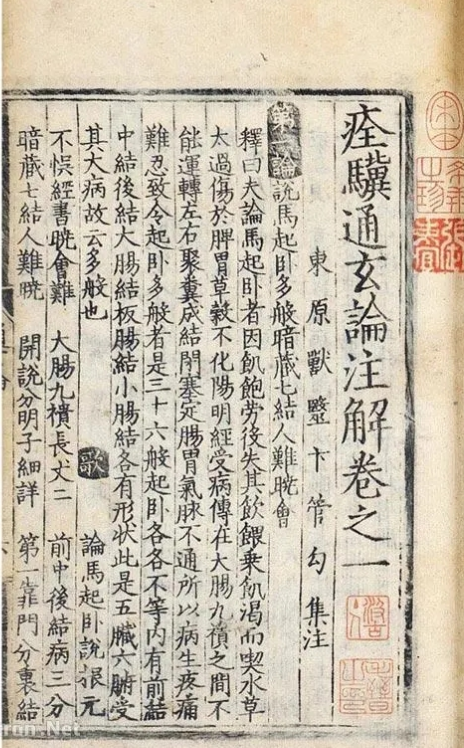 痊驥通玄論注解卷之一
東原獸毉卞管勾集注
第一論說馬起卧多般暗藏七結人難曉會
釋曰夫論馬起卧者因飢飽勞後失其飲餵乗飢渴而喫水草
太過傷於脾胃草糓不化陽明經受病傳在大腸九𧝓之間不
能運轉左右聚糞成結閉塞定腸胃氣脉不通所以病生疼痛
難忍致令起卧多般者是三十六般起卧各各不等内有前結
中結後結大腸結板腸結小腸結各有形狀此是五臟六腑受
其大病故云多般也 歌 論馬起卧說根元
不悞經書曉會難 大腸九𧝓長丈二 前中後結病三分
暗藏七結人難曉 開說分明子細詳 第一靠門分裏結
ron.Net